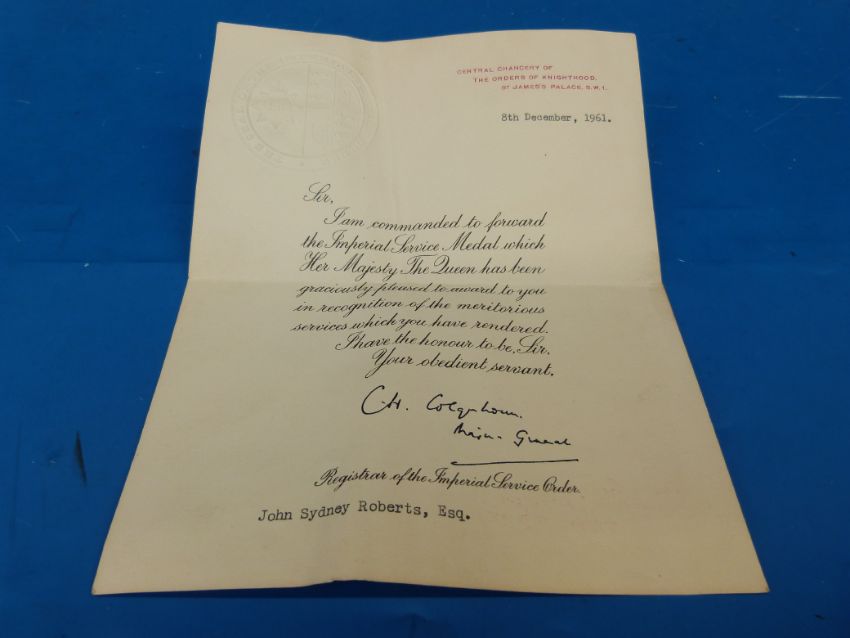 CENTRAL CHANCERY OF
THE ORDERS OF KNIGHTHOOD,
ST JAMES'S PALACE, S.W.1.
8th December, 1961.
Sir,
I am commanded to forward
the Imperial Service Medal which
Her Majesty The Queen has been
graciously pleased to award to you
in recognition of the meritorious
services which you have rendered.
I have the honour to be, Sir,
Your obedient servant,
Major-General
Registrar of the Imperial Service Order.
John Sydney Roberts, Esq.